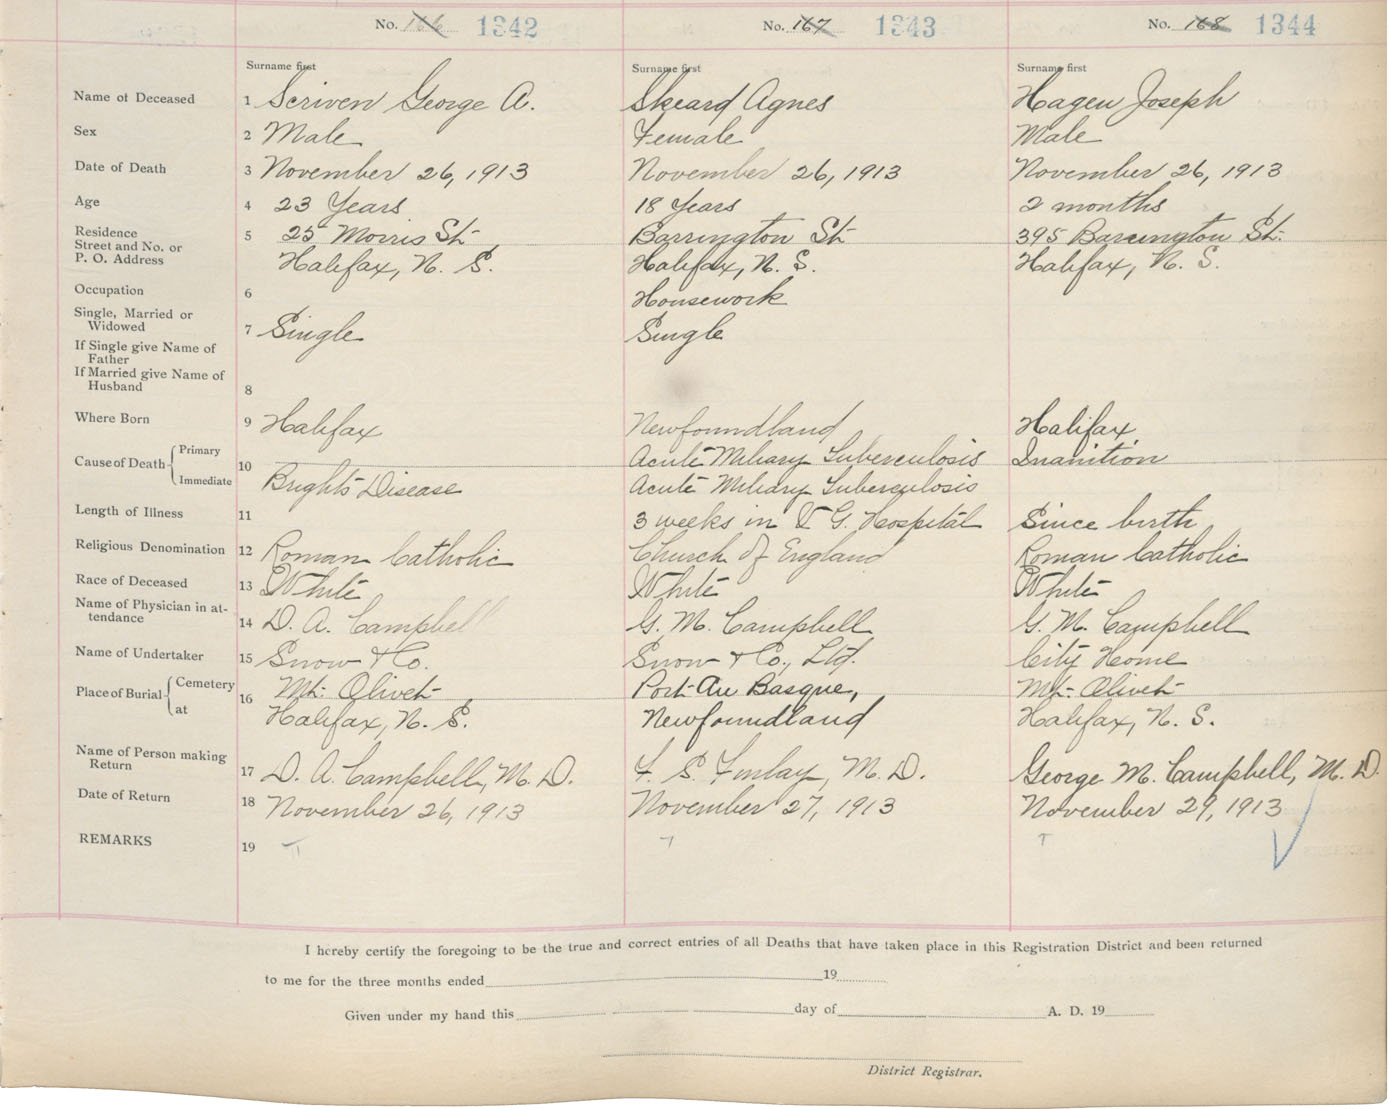 No. 166 1342 No. 167 1343 No. 168 1344
Surname first Surname first Surname first
Name of Deceased 1 Scriven George A. Skeard Agnes Hagen Joseph
Sex 2 Male Female Male
Date of Death 3 November 26, 1913 November 26, 1913 November 26, 1913
Age 4 23 Years 18 Years 2 months
Residence 5 25 Morris St. Barrington St. 395 Barrington St.
Street and No. or
P. O. Address Halifax, N. S. Halifax, N. S. Halifax, N. S.
Occupation 6 Housework
Single, Married or
Widowed 7 Single Single
If Single give Name of
Father
If Married give Name of
Husband 8
Where Born 9 Halifax Newfoundland Halifax
Cause of Death Primary 10 Acute Miliary Tuberculosis Inanition
Immediate Brights Disease Acute Miliary Tuberculosis
Length of Illness 11 3 weeks in V. G. Hospital Since birth
Religious Denomination 12 Roman Catholic Church of England Roman Catholic
Race of Deceased 13 White White White
Name of Physician in at-
tendance 14 D. A. Campbell G. M. Campbell G. M. Campbell
Name of Undertaker 15 Snow & Co. Snow & Co., Ltd. City Home
Place of Burial Cemetery 16 Mt. Olivet Port Au Basque, Mt. Olivet
at Halifax, N. S. Newfoundland Halifax, N. S.
Name of Person making
Return 17 D. A. Campbell, M. D. F. S. Finlay, M. D. George M. Campbell, M. D.
Date of Return 18 November 26, 1913 November 27, 1913 November 29, 1913
REMARKS 19
I hereby certify the foregoing to be the true and correct entries of all Deaths that have taken place in this Registration District and been returned
to me for the three months ended 19
Given under my hand this day of A. D. 19
District Registrar.